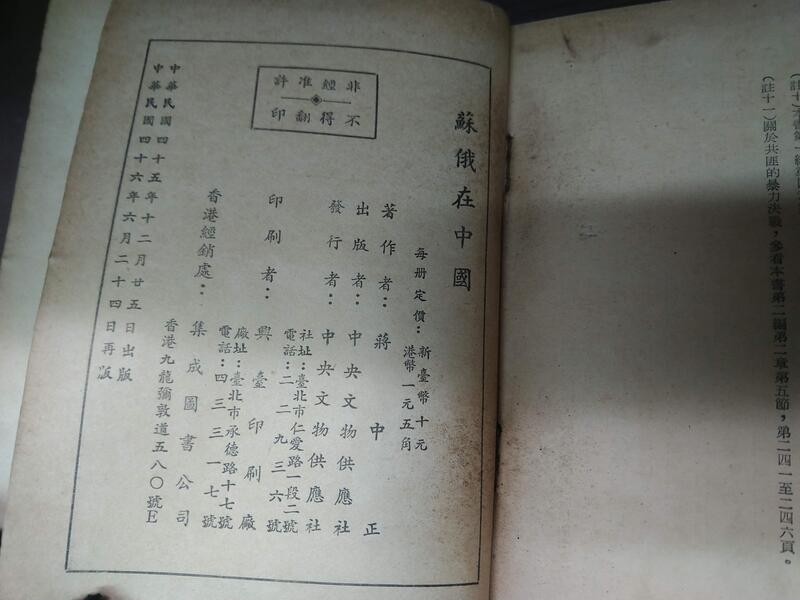 (註十一)關於共匪的暴力決戰，參看本書第二編第二章第五節，第二四一至二四六頁。
蘇俄在中國
每册定價：新臺幣十元
港幣一元五角
著作者：蔣中正
出版者：中央文物供應社
發行者：中央文物供應社
社址：臺北市仁愛路一段二號
電話：二二九三六號
印刷者：興臺印刷廠
廠址：臺北市承德路十七號
電話：四三三一七號
香港經銷處：集成圖書公司
香港九龍彌敦道五八〇號E
非經准許
不得翻印
中華民國四十五年十二月廿五日出版
中華民國四十六年六月二十四日再版